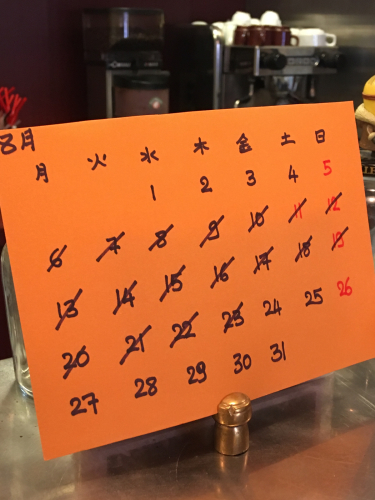 8月
月 火 水 木 金 土 日
1 2 3 4 5
6 7 8 9 10 11 12
13 14 15 16 17 18 19
20 21 22 23 24 25 26
27 28 29 30 31